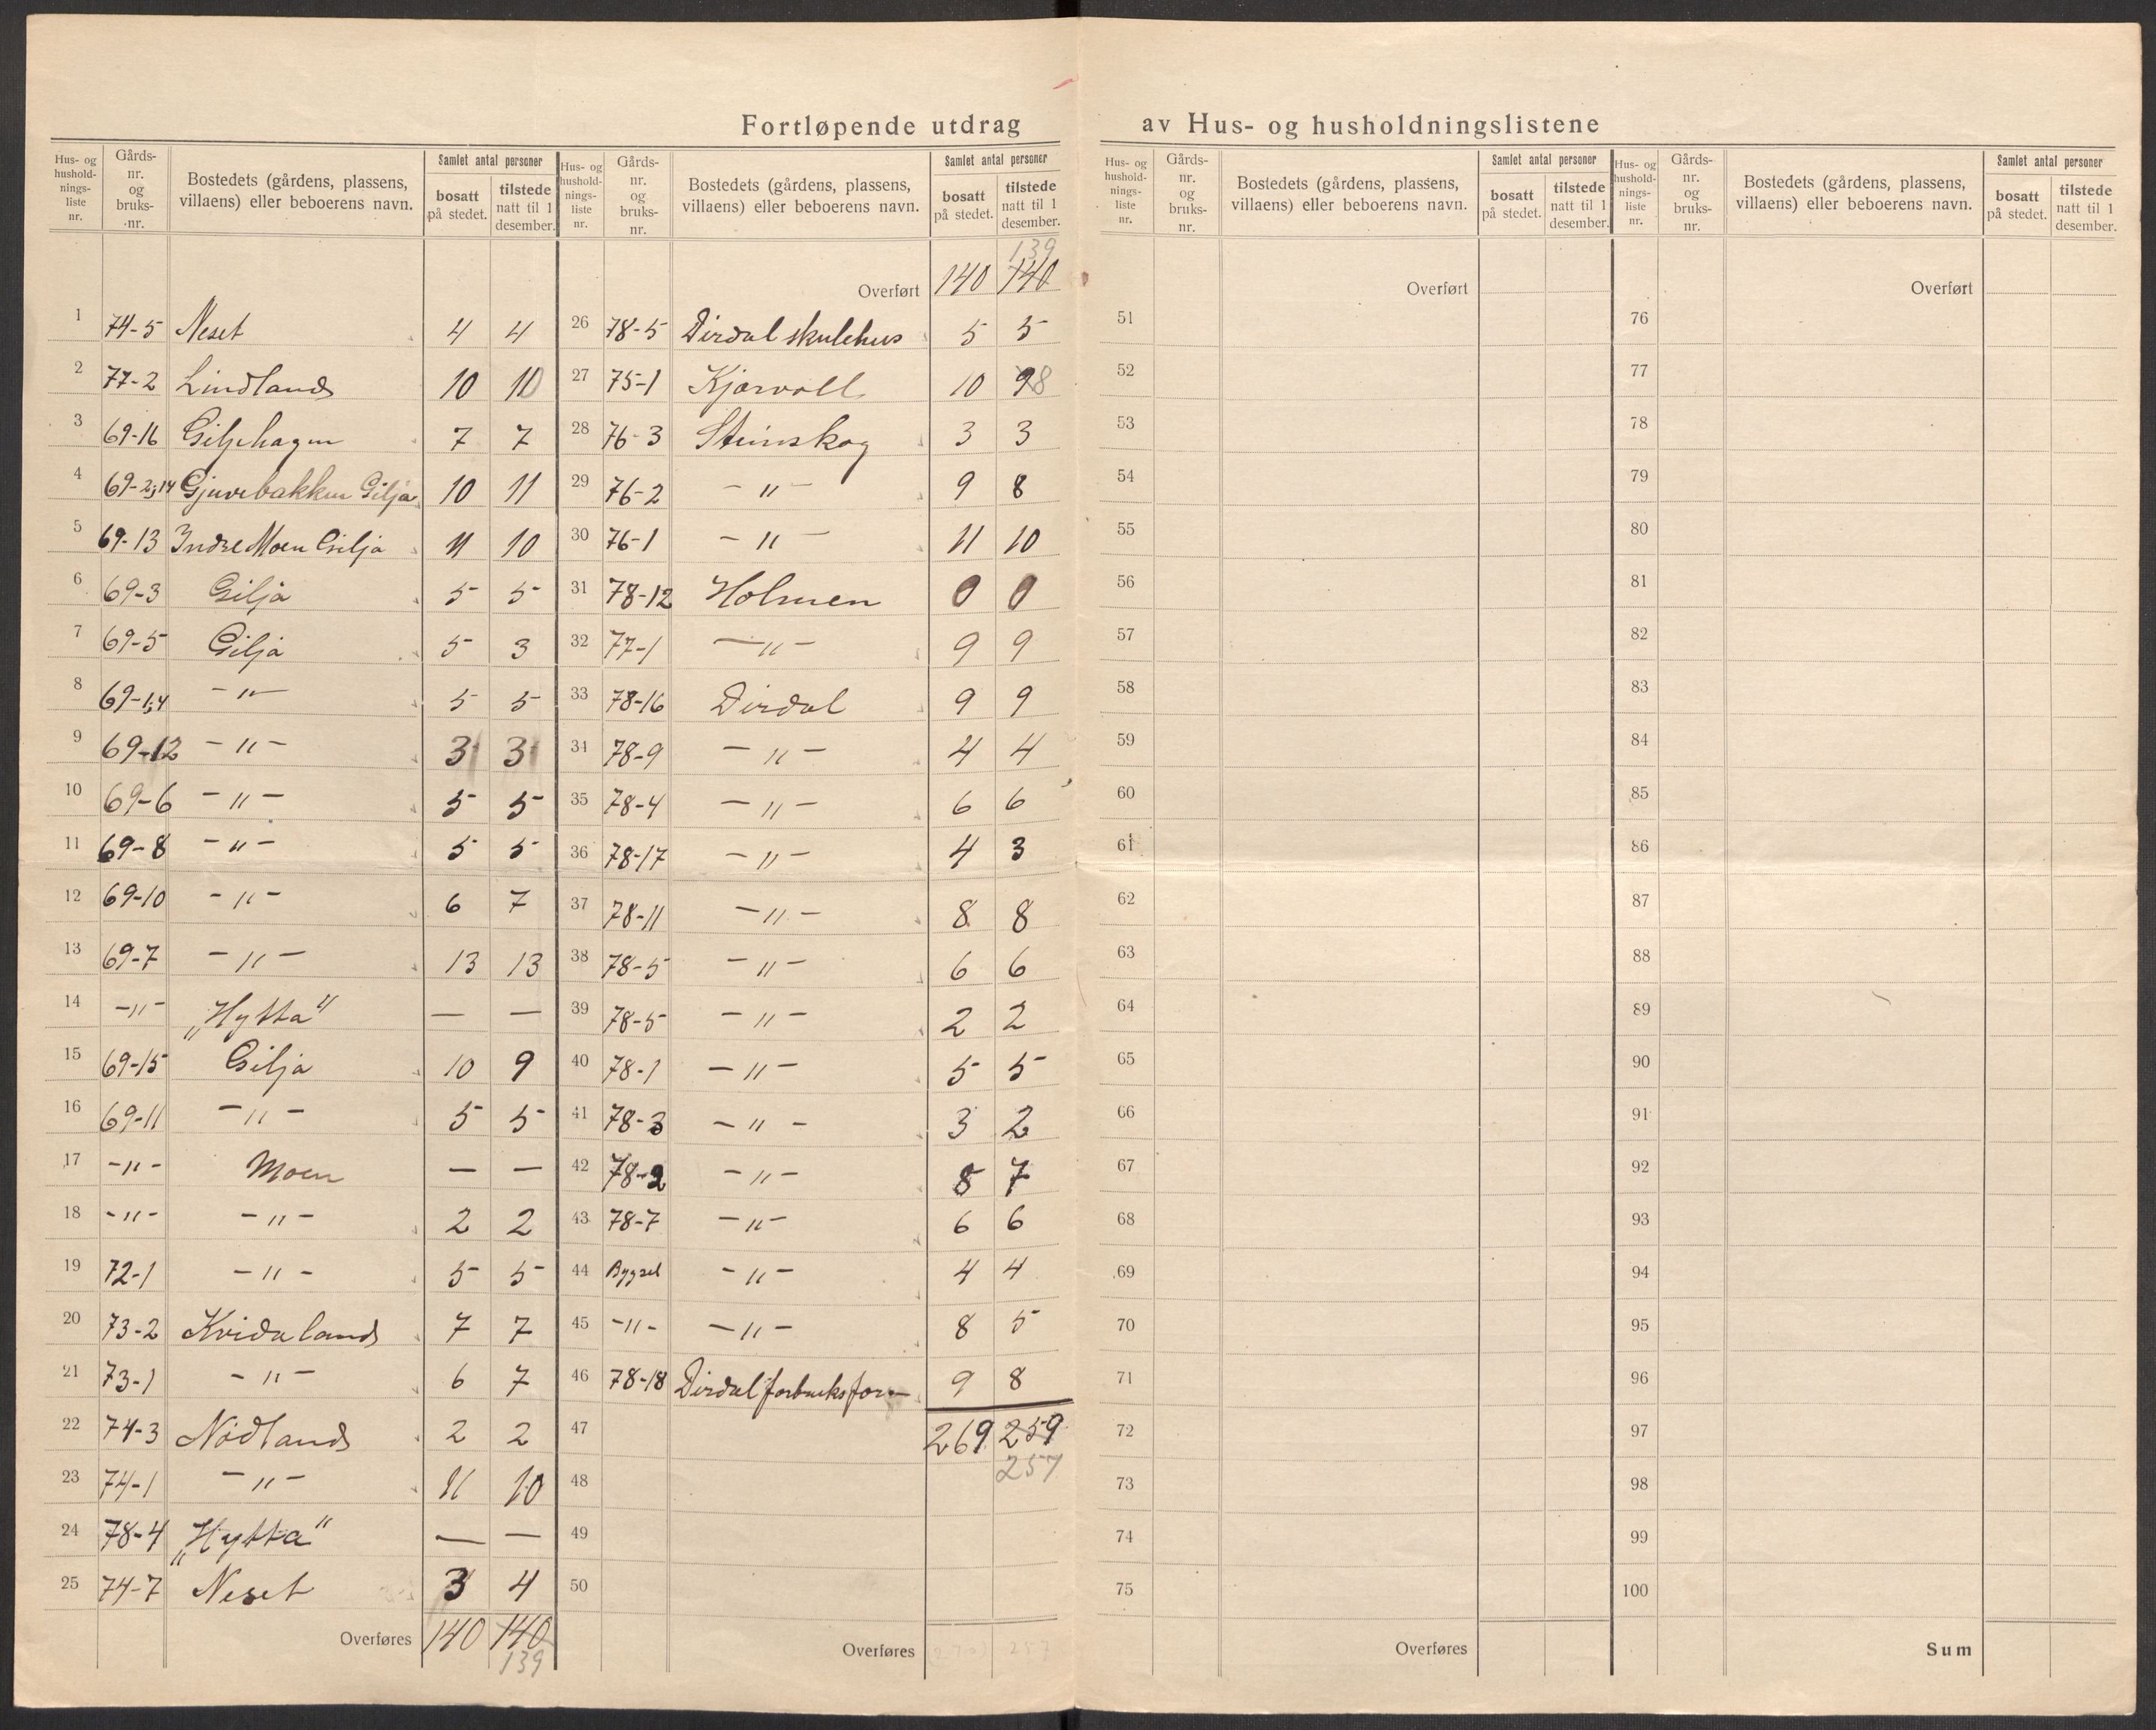 Fortløpende utdrag av Hus- og husholdningslistene
Hus- og hushold- nings- liste nr. | Gårds- nr. og bruks- nr. | Bostedets (gårdens, plassens, villaens) eller beboerens navn. | Samlet antal personer | bosatt på stedet. | tilstede natt til 1 desember.
1 74-5 Neset 4 4
2 77-2 Lindland 10 10
3 69-16 Giljehagen 7 7
4 69-2,14 Gjuvebakken Gilja 10 11
5 69-13 Indre Moen Gilja 11 10
6 69-3 Gilja 5 5
7 69-5 Gilja 5 3
8 69-1,4 -"- 5 5
9 69-12 -"- 3 3
10 69-6 -"- 5 5
11 69-8 -"- 5 5
12 69-10 -"- 6 7
13 69-7 -"- 13 13
14 -"- „Hytta" — —
15 69-15 Gilja 10 9
16 69-11 -"- 5 5
17 -"- Moen — —
18 -"- -"- 2 2
19 72-1 -"- 5 5
20 73-2 Kvidaland 7 7
21 73-1 -"- 6 7
22 74-3 Nødland 2 2
23 74-1 -"- 11 10
24 78-4 „Hytta" — —
25 74-7 Neset 3 4
Overføres 140 140
139
Hus- og hushold- nings- liste nr. | Gårds- nr. og bruks- nr. | Bostedets (gårdens, plassens, villaens) eller beboerens navn. | Samlet antal personer | bosatt på stedet. | tilstede natt til 1 desember.
139
Overført 140 140
26 78-5 Dirdal skulehus 5 5
27 75-1 Kjørvoll 10 9 8
28 76-3 Steinskog 3 3
29 76-2 -"- 9 8
30 76-1 -"- 11 10
31 78-12 Holmen 0 0
32 77-1 -"- 9 9
33 78-16 Dirdal 9 9
34 78-9 -"- 4 4
35 78-4 -"- 6 6
36 78-17 -"- 4 3
37 78-11 -"- 8 8
38 78-5 -"- 6 6
39 78-5 -"- 2 2
40 78-1 -"- 5 5
41 78-3 -"- 3 2
42 78-2 -"- 8 7
43 78-7 -"- 6 6
44 Bygsel -"- 4 4
45 -"- -"- 8 5
46 78-18 Dirdal forbruksfor.- 9 8
47 269 259
48 257
49
50
Overføres 257
Hus- og hushold- nings- liste nr. | Gårds- nr. og bruks- nr. | Bostedets (gårdens, plassens, villaens) eller beboerens navn. | Samlet antal personer | bosatt på stedet. | tilstede natt til 1 desember.
Overført
51
52
53
54
55
56
57
58
59
60
61
62
63
64
65
66
67
68
69
70
71
72
73
74
75
Overføres
Hus- og hushold- nings- liste nr. | Gårds- nr. og bruks- nr. | Bostedets (gårdens, plassens, villaens) eller beboerens navn. | Samlet antal personer | bosatt på stedet. | tilstede natt til 1 desember.
Overført
76
77
78
79
80
81
82
83
84
85
86
87
88
89
90
91
92
93
94
95
96
97
98
99
100
Sum